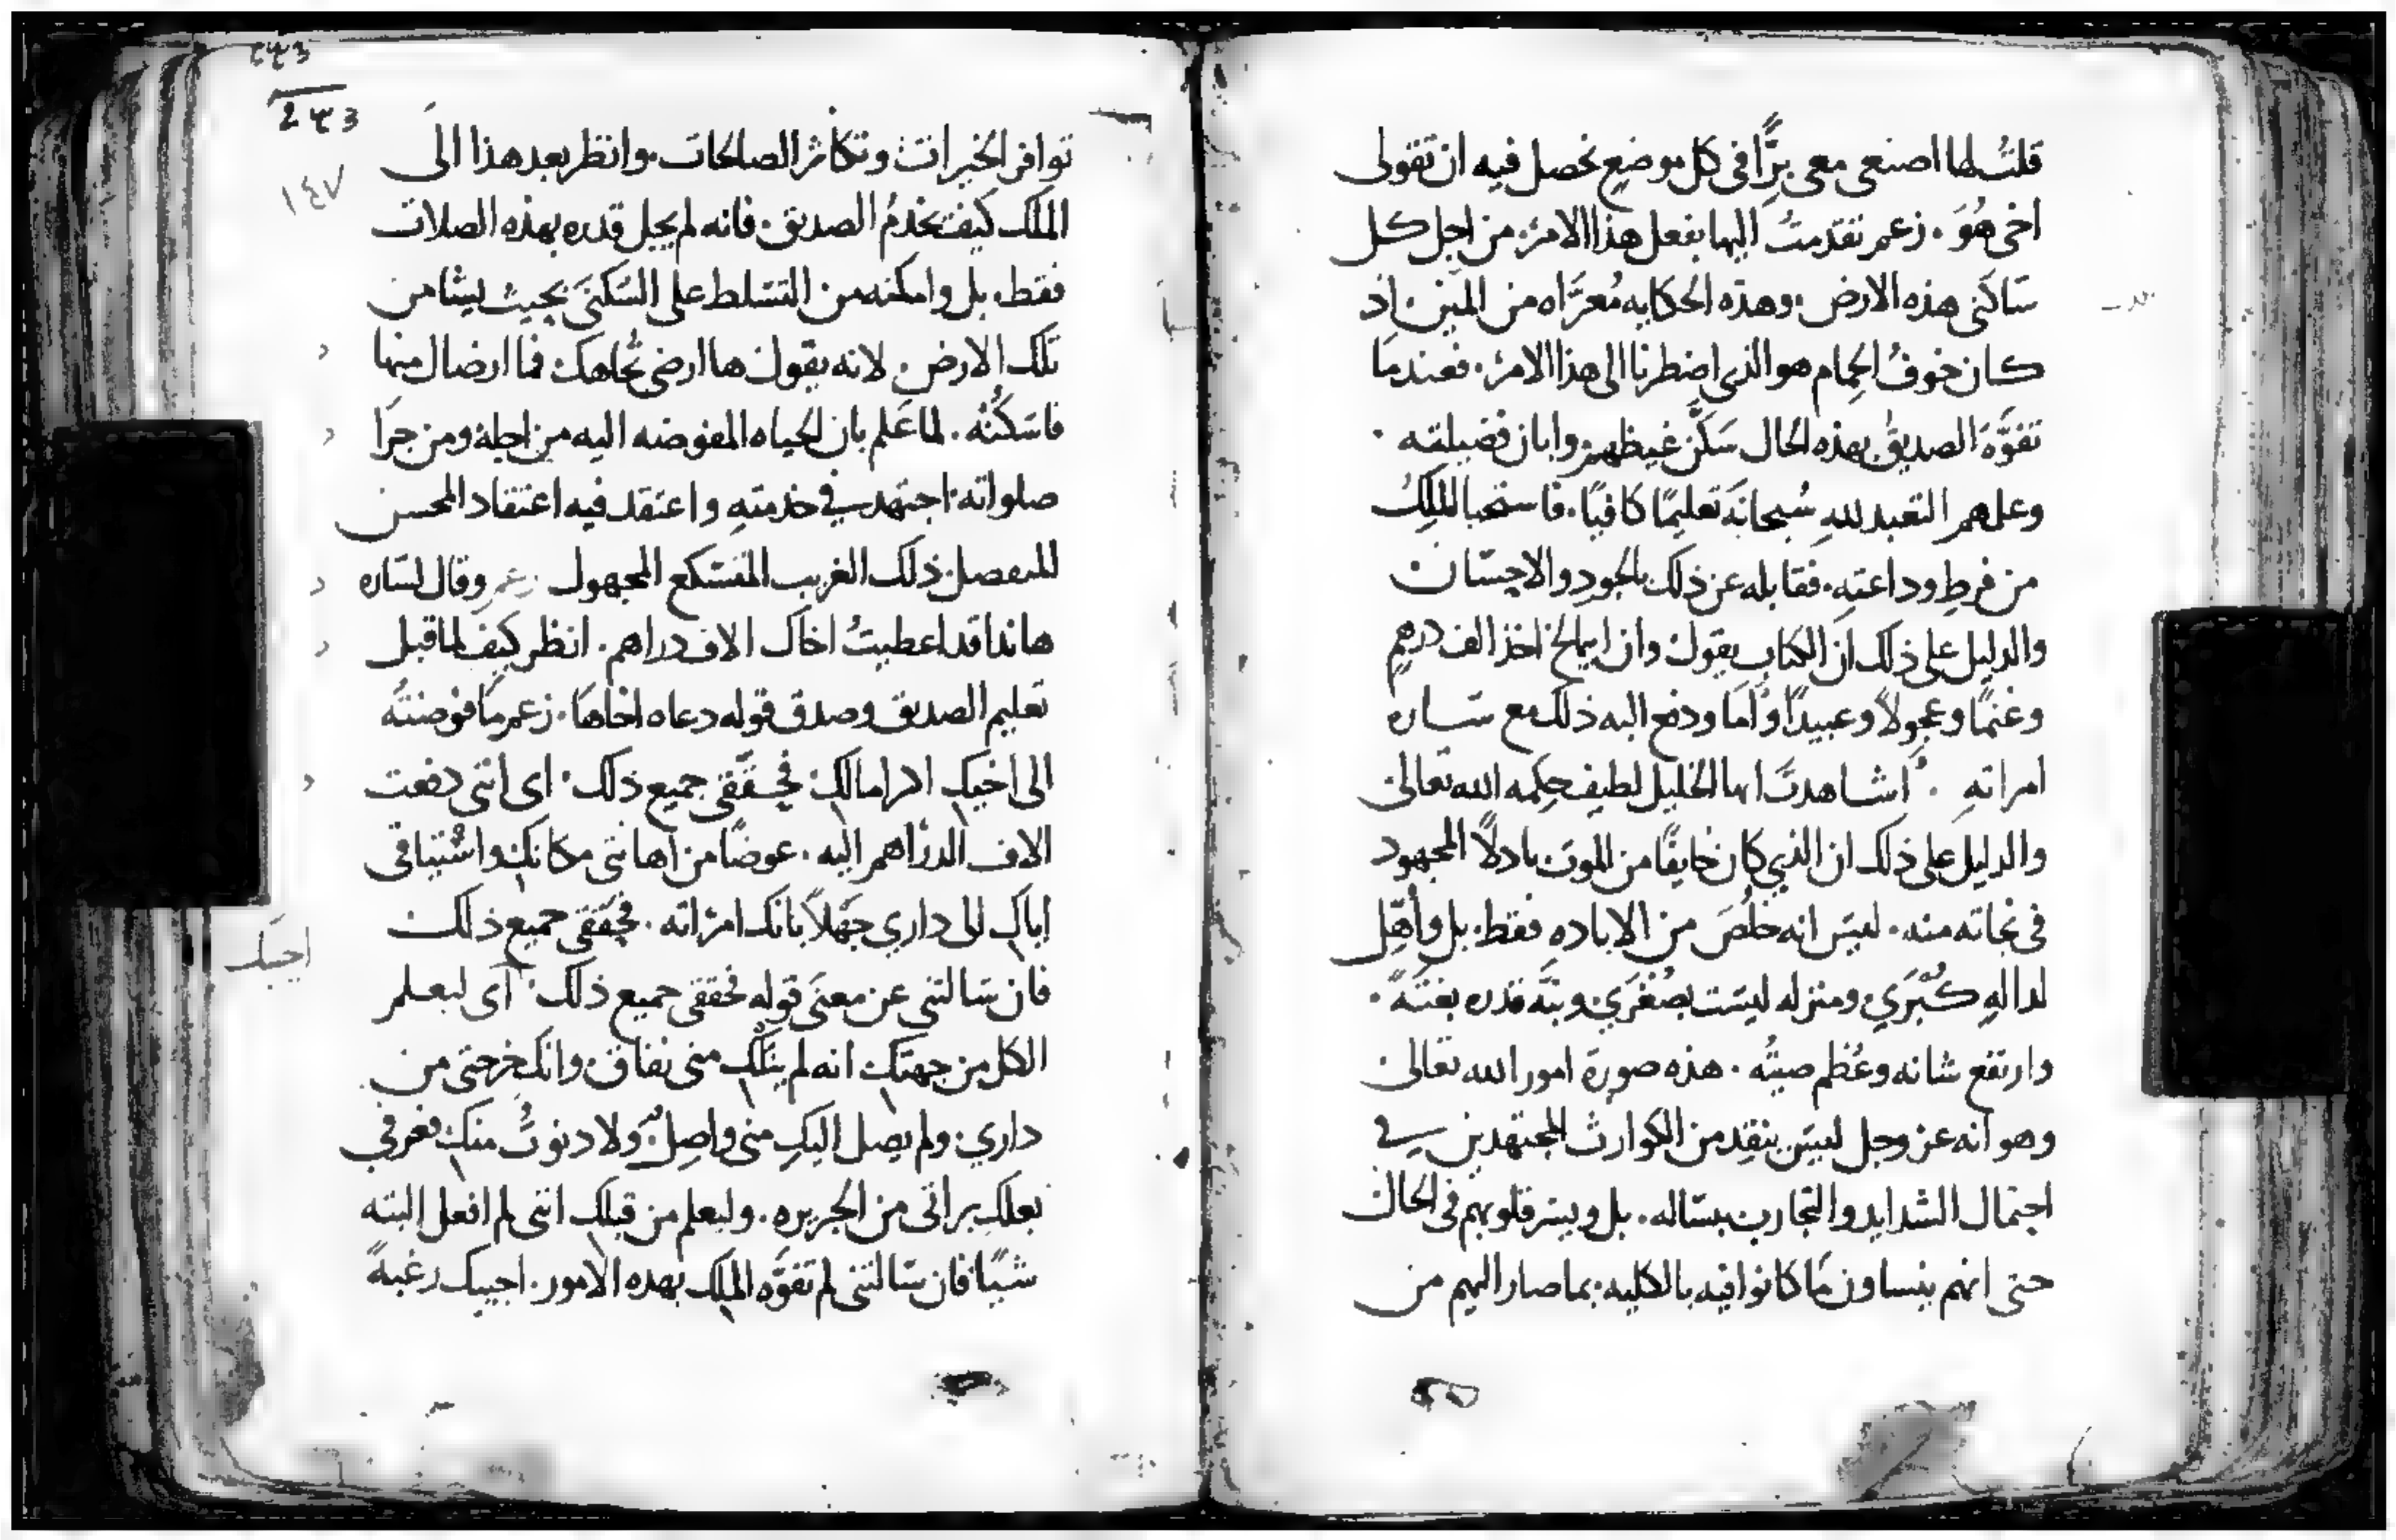 قلتُ لها اصنعي معي برًّا في كل موضع نحصل فيه ان تقولي
اخي هُوَ . زعم تقدمتُ اليها بفعل هذا الامر من اجل كل
ساكني هذه الارض وهذه الحكايه مُعرَّاه من المين اذ
كان خوفُ الحِمام هو الذي اضطرنا الى هذا الامر . فعندما
تفوَّهَ الصديق بهذه الحال سَكَّن غيظهم وابان فضيلته .
وعلمهم التعبد لله سُبحانَه تعليمًا كافيًا . فاستحيا الملكُ
من فرطِ وداعتِهِ . فقابله عن ذلك بالجودِ والاحسان
والدليل على ذلك ان الكتاب يقول وان ابيمالخ اخذ الف درهمٍ
وغنمًا وعجولًا وعبيدًا وأما ودفع اليه ذلك مع ساره
امراتهِ . أشاهدتَ ايها الخليل لطيف حِكمه الله تعالى
والدليل على ذلك ان الذي كان خايفًا من الموت بادلًا المجهود
في نجاته منه . ليس انه خلُصَ من الاباده فقط . بل وأهِّل
لدالهٍ كُبرَي ومنزله ليست بصُغرَي ونبَّه قدره بغتةً .
وارتفع شانه وعُظم صيتُه . هذه صورة امور الله تعالى
وهو انه عز وجل ليس ينقِد من الكوارث المجتهدين في
احتمال الشدايد والتجارب بسّاله . بل ويسر قلوبهم في الحال
حتى انهم ينساون مَا كانوا فيه بالكليه بما صار اليهم من
243
243
١٤٧
توافر الخيرات وتكاثر الصالحات . وانظر بعد هذا الى
الملك كيف يخدمُ الصديق . فانه لم يجل قدره بهذه الصلات
فقط . بل وامكنه من التسلط على السكنَى بحيث يشا من
تلك الارض . لانه يقول ها ارضي تُجاهك فما ارضاك منها
فاسكُنْه . لما عَلم بان الحياه المفوضه اليه من اجله ومن جرَا
صلواته اجتهد في خدمتهِ واعتقد فيه اعتقاد المحسن
المتفضل ذلك الغريب المتسكع المجهول زعم وقال لساره
هانذا قد اعطيتُ اخاك الاف دراهم . انظر كيف لما قبل
تعليم الصديق وصدق قوله دعاه اخاها . زعم مَا فوضتُه
الى اخيكِ اكرامًا لكِ فحققي جميع ذلك . اي انني دفعت
الاف الدرَاهم اليه . عوضًا من اهانتي مكانكِ واشتياقي
اياكِ الى داري جَهلًا بانك امراته . فحققي جميع ذلك
فان سَالتني عن معنَى قوله فحققي جميع ذلك . اي ليعلم
الكل من جهتكِ انه لم ينلكِ مني نفاق وانك خرجتي من
داري ولم يصل اليكِ مني واصلٌ ولا دنوتُ منكِ فعرفي
بعلكِ براتي من الجريره . وليعلم من قبلك انني لم افعل البته
شيًا فان سَالتني لم تفوَّه الملك بهده الامور . اجيبك رغبةً
اجيبك